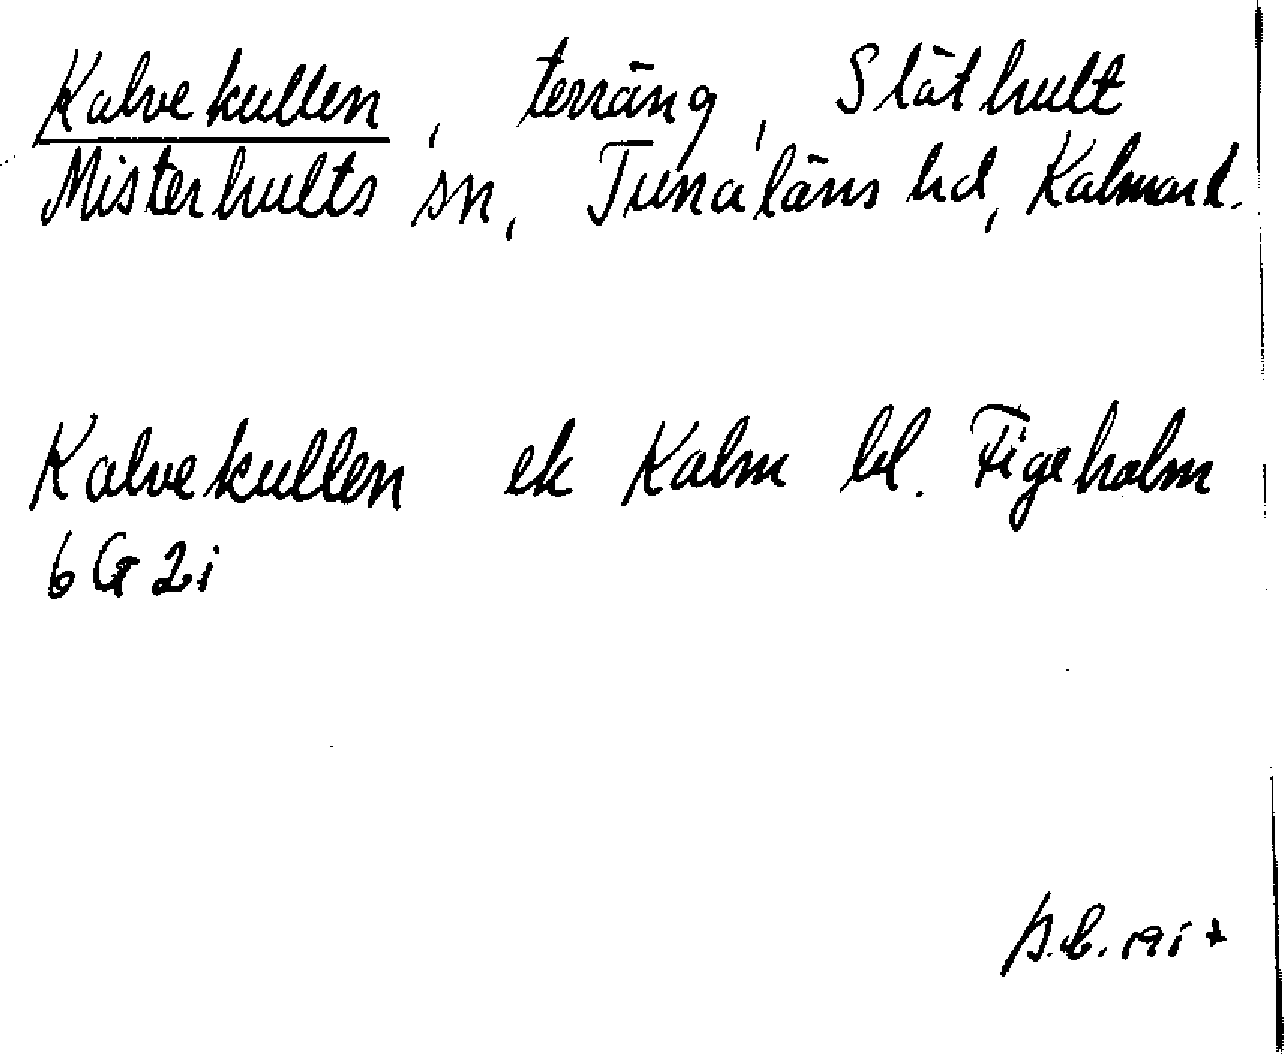 Kalvekullen, terräng, Släthult
Misterhults sn, Tunaläns hd, Kalmar l.
Kalvekullen ek Kalm bl. Figeholm
6G 2i